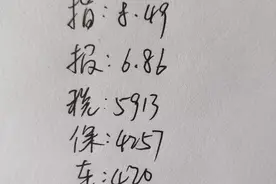 指:8.49
报:6.86
税:5913
保:4257
车:1470